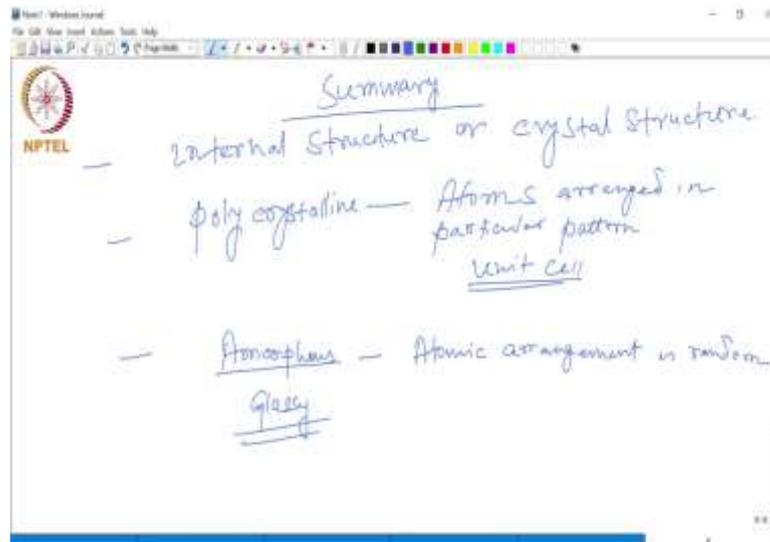 Note1 - Windows Journal
File Edit View Insert Actions Tools Help
Page Width
NPTEL
Summary
- Internal Structure or crystal structure
- poly crystalline — Atoms arranged in
particular pattern
Unit Cell
- Amorphous — Atomic arrangement is random
Glassy